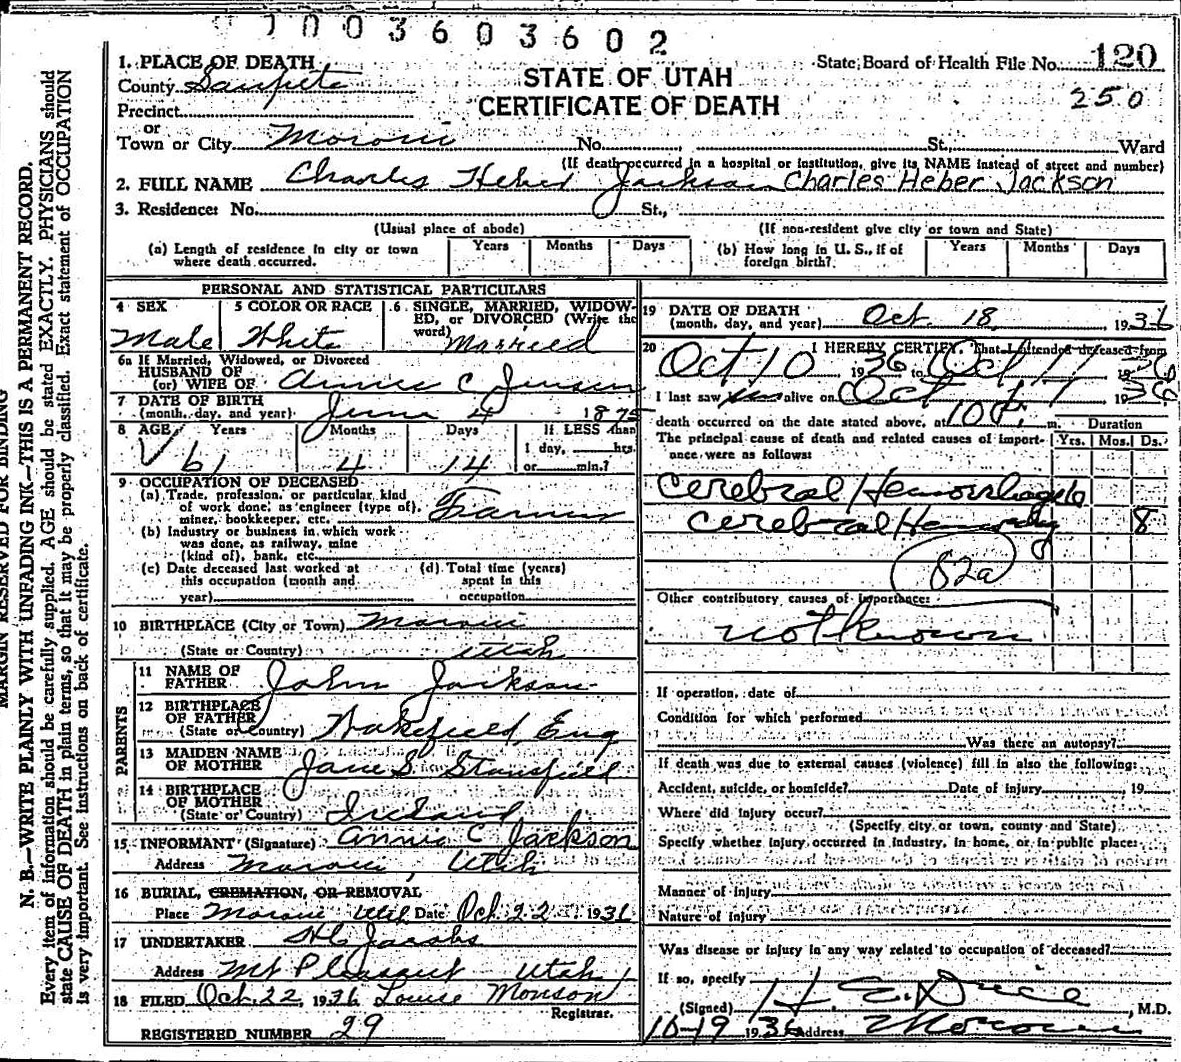 1003603602
1. PLACE OF DEATH
STATE OF UTAH
CERTIFICATE OF DEATH
State Board of Health File No. 120
250
County Sanpete
Precinct
or
Town or City Moroni No. , St., Ward
(If death occurred in a hospital or institution, give its NAME instead of street and number)
2. FULL NAME Charles Heber Jackson Charles Heber Jackson
3. Residence: No. St.,
(Usual place of abode) (If non-resident give city or town and State)
(a) Length of residence in city or town where death occurred. Years Months Days
(b) How long in U. S., if of foreign birth? Years Months Days
PERSONAL AND STATISTICAL PARTICULARS
4 SEX Male
5 COLOR OR RACE White
6 SINGLE, MARRIED, WIDOWED, or DIVORCED (Write the word) Married
6a If Married, Widowed, or Divorced
HUSBAND OF
(or) WIFE OF Annie C Jensen
7 DATE OF BIRTH
(month, day, and year) June 4 1875
8 AGE Years Months Days If LESS than
61 4 14 1 day, hrs.
or min.?
9 OCCUPATION OF DECEASED
(a) Trade, profession, or particular kind of work done, as engineer (type of), miner, bookkeeper, etc. Farmer
(b) Industry or business in which work was done, as railway, mine (kind of), bank, etc.
(c) Date deceased last worked at this occupation (month and year)
(d) Total time (years) spent in this occupation
10 BIRTHPLACE (City or Town) Moroni
(State or Country) Utah
PARENTS
11 NAME OF FATHER John Jackson
12 BIRTHPLACE OF FATHER
(State or Country) Wakefield, Eng
13 MAIDEN NAME OF MOTHER Jane S. Stansfield
14 BIRTHPLACE OF MOTHER
(State or Country) Ireland
15 INFORMANT (Signature) Annie C Jackson
Address Moroni, Utah
16 BURIAL, CREMATION, OR REMOVAL
Place Moroni Utah Date Oct. 22 1936
17 UNDERTAKER Jacobs
Address Mt Pleasant Utah
18 FILED Oct. 22, 1936 Louise Monson
Registrar.
REGISTERED NUMBER 29
19 DATE OF DEATH
(month, day, and year) Oct. 18, 1936
20 I HEREBY CERTIFY, That I attended deceased from
Oct 10 1936 to Oct 17 1936
I last saw him alive on Oct 17 1936
death occurred on the date stated above, at 10 P. m.
Duration
The principal cause of death and related causes of importance were as follows: Yrs. Mos. Ds.
Cerebral Hemorrhage
Cerebral Hemorrhag 8
82a
Other contributory causes of importance:
not known
If operation, date of
Condition for which performed
Was there an autopsy?
If death was due to external causes (violence) fill in also the following:
Accident, suicide, or homicide? Date of injury , 19
Where did injury occur?
(Specify city or town, county and State)
Specify whether injury occurred in industry, in home, or in public place:
Manner of injury
Nature of injury
Was disease or injury in any way related to occupation of deceased?
If so, specify
(Signed) , M.D.
10-19 1936 Address Moroni
MARGIN RESERVED FOR BINDING
N. B.—WRITE PLAINLY WITH UNFADING INK—THIS IS A PERMANENT RECORD.
Every item of information should be carefully supplied. AGE should be stated EXACTLY. PHYSICIANS should
state CAUSE OF DEATH in plain terms, so that it may be properly classified. Exact statement of OCCUPATION
is very important. See instructions on back of certificate.